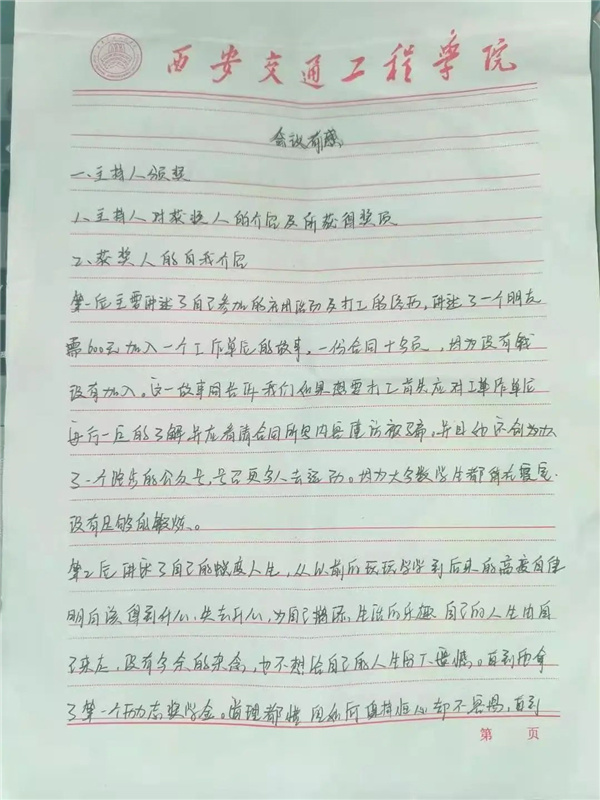 西安交通工程学院
会议有感
一、主持人颁奖
1、主持人对获奖人的介绍及所获得奖项
2、获奖人的自我介绍
第一位主要讲述了自己参加的活动及打工的经历，讲述了一个朋友
需600元加入一个工作单位的故事。一份合同十多页，因为没有钱
没有加入。这一故事同告诉我们如果想要打工首先应对工作单位
有一定的了解并应看清合同所里内容谨访被骗，并且他还创办
了一个跑步的公众号，号召更多人去运动。因为大多数学生都窝在寝室
没有足够的锻炼。
第2位讲述了自己的蜕变人生，从以前的玩玩学学到后来的高度自律
明白该得到什么，失去什么，为自己拼搏，生活的乐趣自己的人生由自
己来走，没有多余的杂念，也不想给自己的人生留下遗憾。直到他拿
了第一个励志奖学金。道理都懂但如何坚持恒心却不容易，直到
第 页